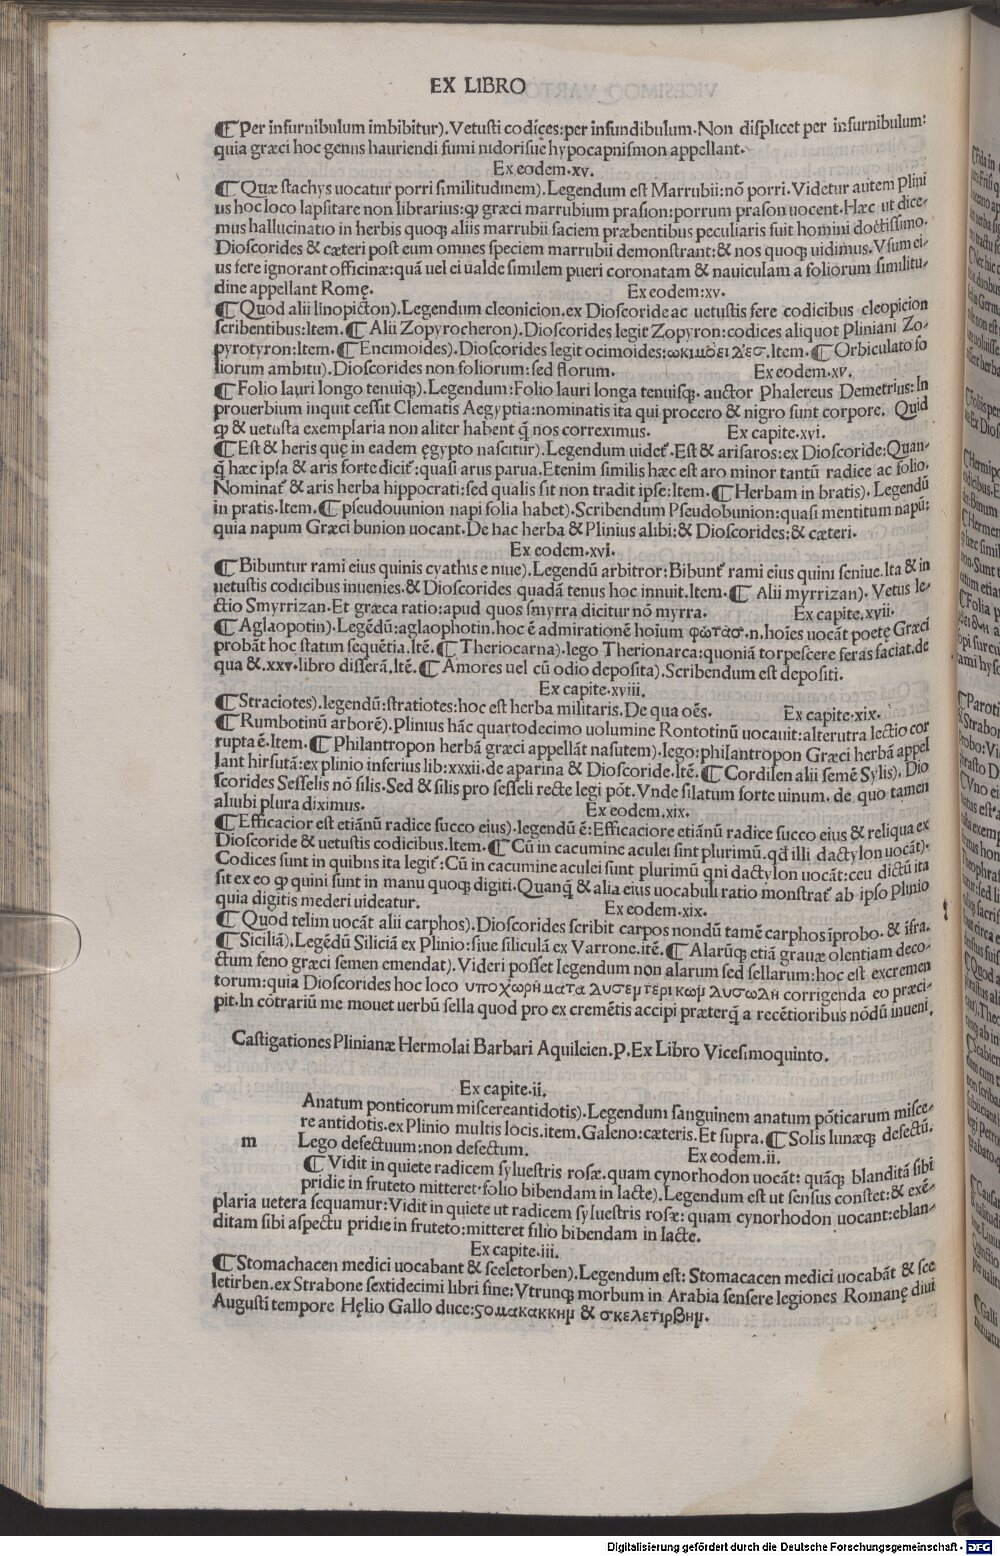 EX LIBRO
¶Per insurnibulum imbibitur). Vetusti codices:per infundibulum. Non displicet per insurnibulum:
quia græci hoc genus hauriendi fumi nidorisue hypocapnismon appellant.
Ex eodem.xv.
¶Quæ stachys uocatur porri similitudinem). Legendum est Marrubii:nõ porri. Videtur autem Plini
us hoc loco lapsitare non librarius:ꝙ græci marrubium prasion:porrum prason uocent. Hæc ut dice-
mus hallucinatio in herbis quoqꝫ aliis marrubii faciem præbentibus peculiaris fuit homini doctissimo.
Dioscorides & cæteri post eum omnes speciem marrubii demonstrant:& nos quoqꝫ uidimus. Vsum ei-
us fere ignorant officinæ:quã uel ei ualde similem pueri coronatam & nauiculam a foliorum similitu-
dine appellant Romę. Ex eodem:xv.
¶Quod alii linopicton). Legendum cleonicion.ex Dioscoride ac uetustis fere codicibus cleopicion
scribentibus:Item. ¶Alii Zopyrocheron). Dioscorides legit Zopyron:codices aliquot Pliniani Zo-
pyrotyron:Item. ¶Encimoides). Dioscorides legit ocimoides:ωκιμοειδεσ.Item. ¶Orbiculato fo
liorum ambitu). Dioscorides non foliorum:sed florum. Ex eodem.xv.
¶Folio lauri longo tenuiqꝫ). Legendum:Folio lauri longa tenuisqꝫ. auctor Phalereus Demetrius:In
prouerbium inquit cessit Clematis Aegyptia:nominatis ita qui procero & nigro sunt corpore. Quid
ꝙ & uetusta exemplaria non aliter habent q̃ nos correximus. Ex capite.xvi.
¶Est & heris quę in eadem ęgypto nascitur). Legendum uidet᷑. Est & arisaros:ex Dioscoride:Quan-
q̃ hæc ipsa & aris forte dicit᷑:quasi arus parua. Etenim similis hæc est aro minor tantũ radice ac folio.
Nominat᷑ & aris herba hippocrati:sed qualis sit non tradit ipse:Item. ¶Herbam in bratis). Legendũ
in pratis.Item. ¶pseudouunion napi folia habet). Scribendum Pseudobunion:quasi mentitum napũ:
quia napum Græci bunion uocant. De hac herba & Plinius alibi:& Dioscorides:& cæteri.
Ex eodem.xvi.
¶Bibuntur rami eius quinis cyathis e niue). Legendũ arbitror:Bibunt᷑ rami eius quini seniue. Ita & in
uetustis codicibus inuenies.& Dioscorides quadã tenus hoc innuit. Item. ¶ Alii myrrizan). Vetus le-
ctio Smyrrizan. Et græca ratio:apud quos smyrra dicitur nõ myrra. Ex capite.xvii.
¶Aglaopotin). Legẽdũ:aglaophotin.hoc ẽ admirationẽ hoĩum φωτασ.n.hoĩes uocãt poetę Græci
probãt hoc statim sequẽtia.Itẽ. ¶Theriocarna). lego Therionarca:quoniã torpescere feras faciat.de
qua &.xxv.libro disserã.Itẽ. ¶Amores uel cũ odio deposita). Scribendum est depositi.
Ex capite.xviii.
¶Straciotes). legendũ:stratiotes:hoc est herba militaris. De qua oẽs. Ex capite.xix.
¶Rumbotinũ arborẽ). Plinius hãc quartodecimo uolumine Rontotinũ uocauit:alterutra lectio cor
rupta ẽ.Item. ¶Philantropon herbã græci appellãt nasutem). lego:philantropon Græci herbã appel
lant hirsutã:ex plinio inferius lib:xxxii.de aparina & Dioscoride.Itẽ. ¶Cordilen alii semẽ Sylis). Dio
scorides Sesselis nõ silis. Sed & silis pro sesseli recte legi põt. Vnde silatum forte uinum. de quo tamen
aliubi plura diximus. Ex eodem.xix.
¶Efficacior est etiãnũ radice succo eius). legendũ ẽ:Efficaciore etiãnũ radice succo eius & reliqua ex
Dioscoride & uetustis codicibus.Item. ¶Cũ in cacumine aculei sint plurimũ.qđ illi dactylon uocãt).
Codices sunt in quibus ita legit᷑:Cũ in cacumine aculei sunt plurimũ qni dactylon uocãt:ceu dictũ ita
sit ex eo ꝙ quini sunt in manu quoqꝫ digiti. Quanq̃ & alia eius uocabuli ratio monstrat᷑ ab ipso Plinio
quia digitis mederi uideatur. Ex eodem.xix.
¶ Quod telim uocãt alii carphos). Dioscorides scribit carpos nondũ tamẽ carphos ĩprobo.& ĩfra.
¶Siciliã). Legẽdũ Siliciã ex Plinio:siue siliculã ex Varrone.itẽ. ¶Alarũqꝫ etiã grauæ olentiam deco-
ctum feno græci semen emendat). Videri posset legendum non alarum sed sellarum:hoc est excremen
torum:quia Dioscorides hoc loco υποχωρηματα δυσεντερικων δυσωδη corrigenda eo præci-
pit. In cõtrariũ me mouet uerbũ sella quod pro ex cremẽtis accipi præterq̃ a recẽtioribus nõdũ inueni.
Castigationes Plinianæ Hermolai Barbari Aquileien.P.Ex Libro Vicesimoquinto.
Ex capite.ii.
Anatum ponticorum miscereantidotis). Legendum sanguinem anatum põticarum misce-
re antidotis.ex Plinio multis locis.item.Galeno:cæteris.Et supra. ¶Solis lunæqꝫ defectũ.
m Lego defectuum:non defectum. Ex eodem.ii.
¶Vidit in quiete radicem syluestris rosæ.quam cynorhodon uocãt: quãqꝫ blanditã sibi
pridie in fruteto mitteret.folio bibendam in lacte). Legendum est ut sensus constet:& exẽ-
plaria uetera sequamur:Vidit in quiete ut radicem syluestris rosæ: quam cynorhodon uocant:eblan-
ditam sibi aspectu pridie in fruteto:mitteret filio bibendam in lacte.
Ex capite.iii.
¶Stomachacen medici uocabant & sceletorben). Legendum est: Stomacacen medici uocabãt & sce
letirben.ex Strabone sextidecimi libri fine:Vtrunqꝫ morbum in Arabia sensere legiones Romanę diui
Augusti tempore Hęlio Gallo duce:ςομακακκην & σκελετιρβην.